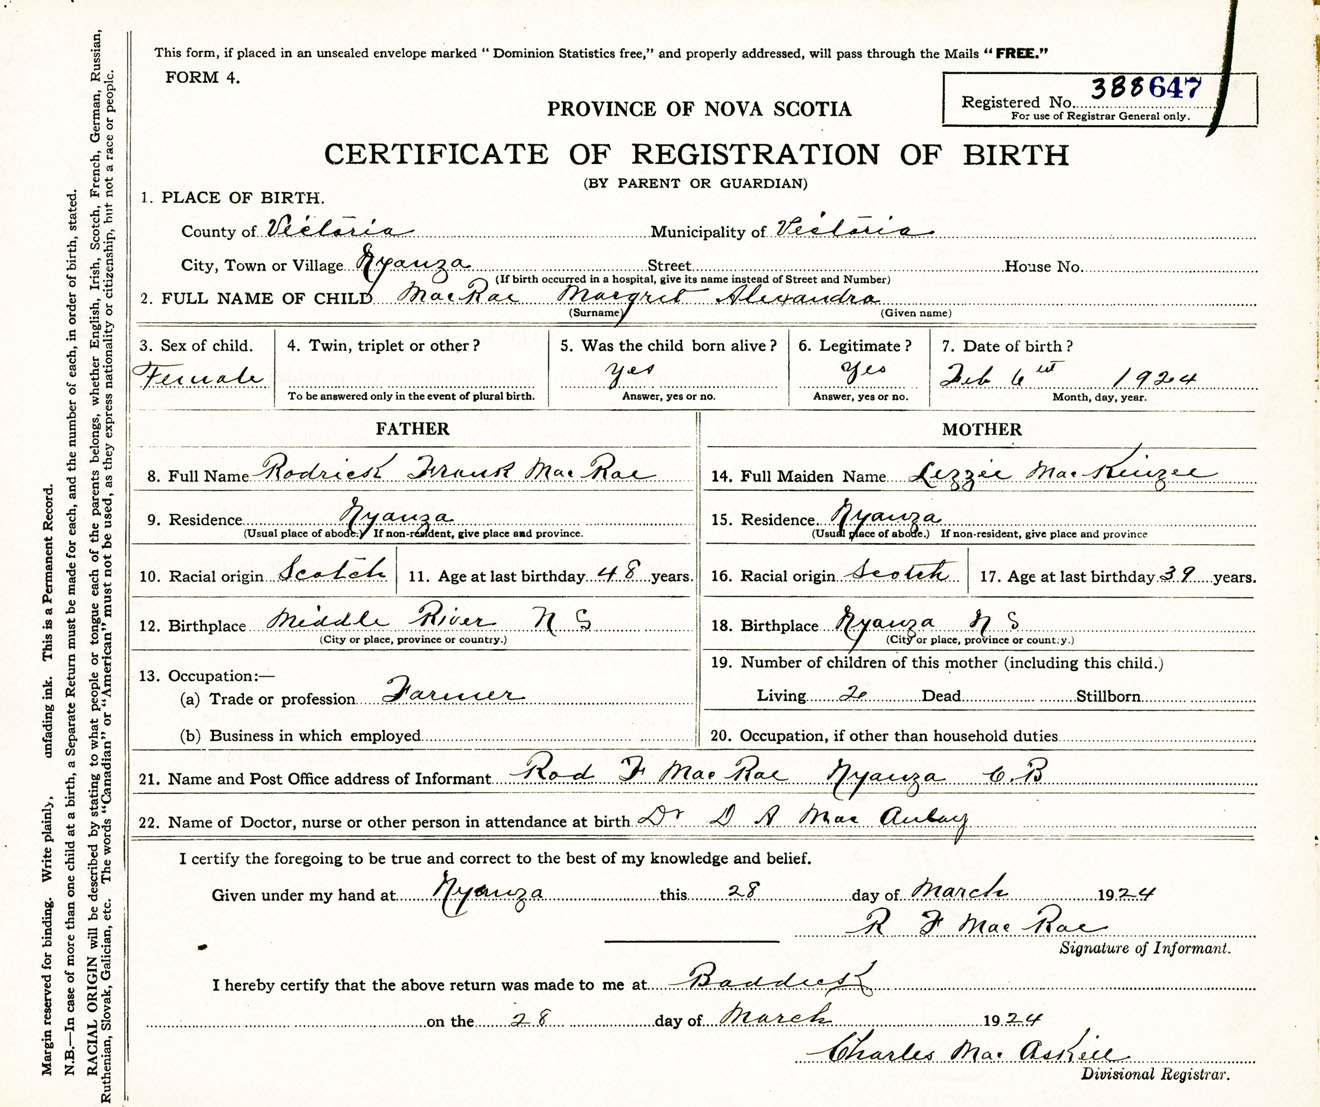 This form, if placed in an unsealed envelope marked " Dominion Statistics free," and properly addressed, will pass through the Mails " FREE."
FORM 4.
Registered No. 388647
For use of Registrar General only.
PROVINCE OF NOVA SCOTIA
CERTIFICATE OF REGISTRATION OF BIRTH
(BY PARENT OR GUARDIAN)
1. PLACE OF BIRTH.
County of Victoria Municipality of Victoria
City, Town or Village Nyanza Street House No.
(If birth occurred in a hospital, give its name instead of Street and Number)
2. FULL NAME OF CHILD MacRae Margret Alexandra
(Surname) (Given name)
3. Sex of child. 4. Twin, triplet or other? 5. Was the child born alive? 6. Legitimate? 7. Date of birth?
Female yes Yes Feb 6 1924
To be answered only in the event of plural birth. Answer, yes or no. Answer, yes or no. Month, day, year.
FATHER MOTHER
8. Full Name Rodrick Frank MacRae 14. Full Maiden Name Lizzie MacKinzee
9. Residence Nyanza 15. Residence Nyanza
(Usual place of abode.) If non-resident, give place and province. (Usual place of abode.) If non-resident, give place and province
10. Racial origin Scotch 11. Age at last birthday 48 years. 16. Racial origin Scotch 17. Age at last birthday 39 years.
12. Birthplace Middle River N S 18. Birthplace Nyanza N S
(City or place, province or country.) (City or place, province or country.)
19. Number of children of this mother (including this child.)
13. Occupation:—
(a) Trade or profession Farmer Living 2 Dead Stillborn
(b) Business in which employed 20. Occupation, if other than household duties
21. Name and Post Office address of Informant Rod F MacRae Nyanza C.B
22. Name of Doctor, nurse or other person in attendance at birth Dr D A Mac Aulay
I certify the foregoing to be true and correct to the best of my knowledge and belief.
Given under my hand at Nyanza this 28 day of March 1924
R F MacRae
Signature of Informant.
I hereby certify that the above return was made to me at Baddeck
on the 28 day of March 1924
Charles Mac Askill
Divisional Registrar.
Margin reserved for binding. Write plainly, unfading ink. This is a Permanent Record.
N.B.—In case of more than one child at a birth, a Separate Return must be made for each, and the number of each, in order of birth, stated.
RACIAL ORIGIN will be described by stating to what people or tongue each of the parents belongs, whether English, Irish, Scotch, French, German, Russian,
Ruthenian, Slovak, Galician, etc. The words "Canadian" or "American" must not be used, as they express nationality or citizenship, but not a race or people.